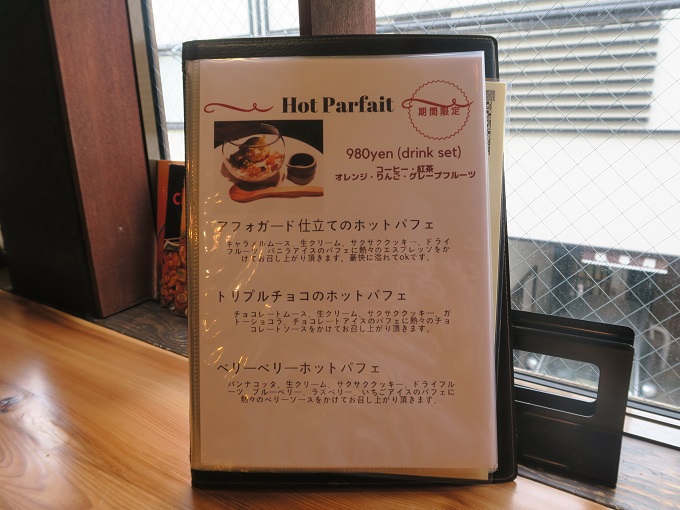 Hot Parfait
期間限定
980yen (drink set)
コーヒー・紅茶
オレンジ・りんご・グレープフルーツ
アフォガード仕立てのホットパフェ
キャラメルムース、生クリーム、サクサククッキー、ドライ
フルーツ、バニラアイスのパフェに熱々のエスプレッソをか
けてお召し上がり頂きます。豪快に溢れてokです。
トリプルチョコのホットパフェ
チョコレートムース、生クリーム、サクサククッキー、ガ
トーショコラ、チョコレートアイスのパフェに熱々のチョ
コレートソースをかけてお召し上がり頂きます。
ベリーベリーホットパフェ
パンナコッタ、生クリーム、サクサククッキー、ドライフル
ーツ、ブルーベリー、ラズベリー、いちごアイスのパフェに
熱々のベリーソースをかけてお召し上がり頂きます。